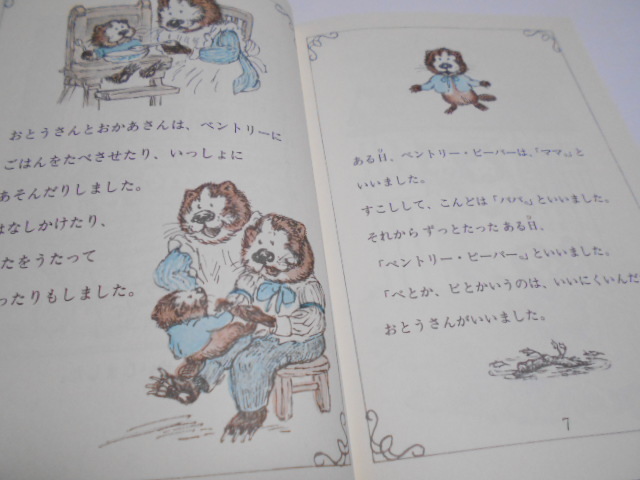 おとうさんとおかあさんは、ベントリーに
ごはんをたべさせたり、いっしょに
あそんだりしました。
はなしかけたり、
たをうたって
ったりもしました。
ある日、ベントリー・ビーバーは、「ママ。」と
いいました。
すこしして、こんどは「パパ。」といいました。
それから ずっとたった ある日、
「ベントリー・ビーバー。」といいました。
「べとか、ビとかいうのは、いいにくいんだ
おとうさんがいいました。
7